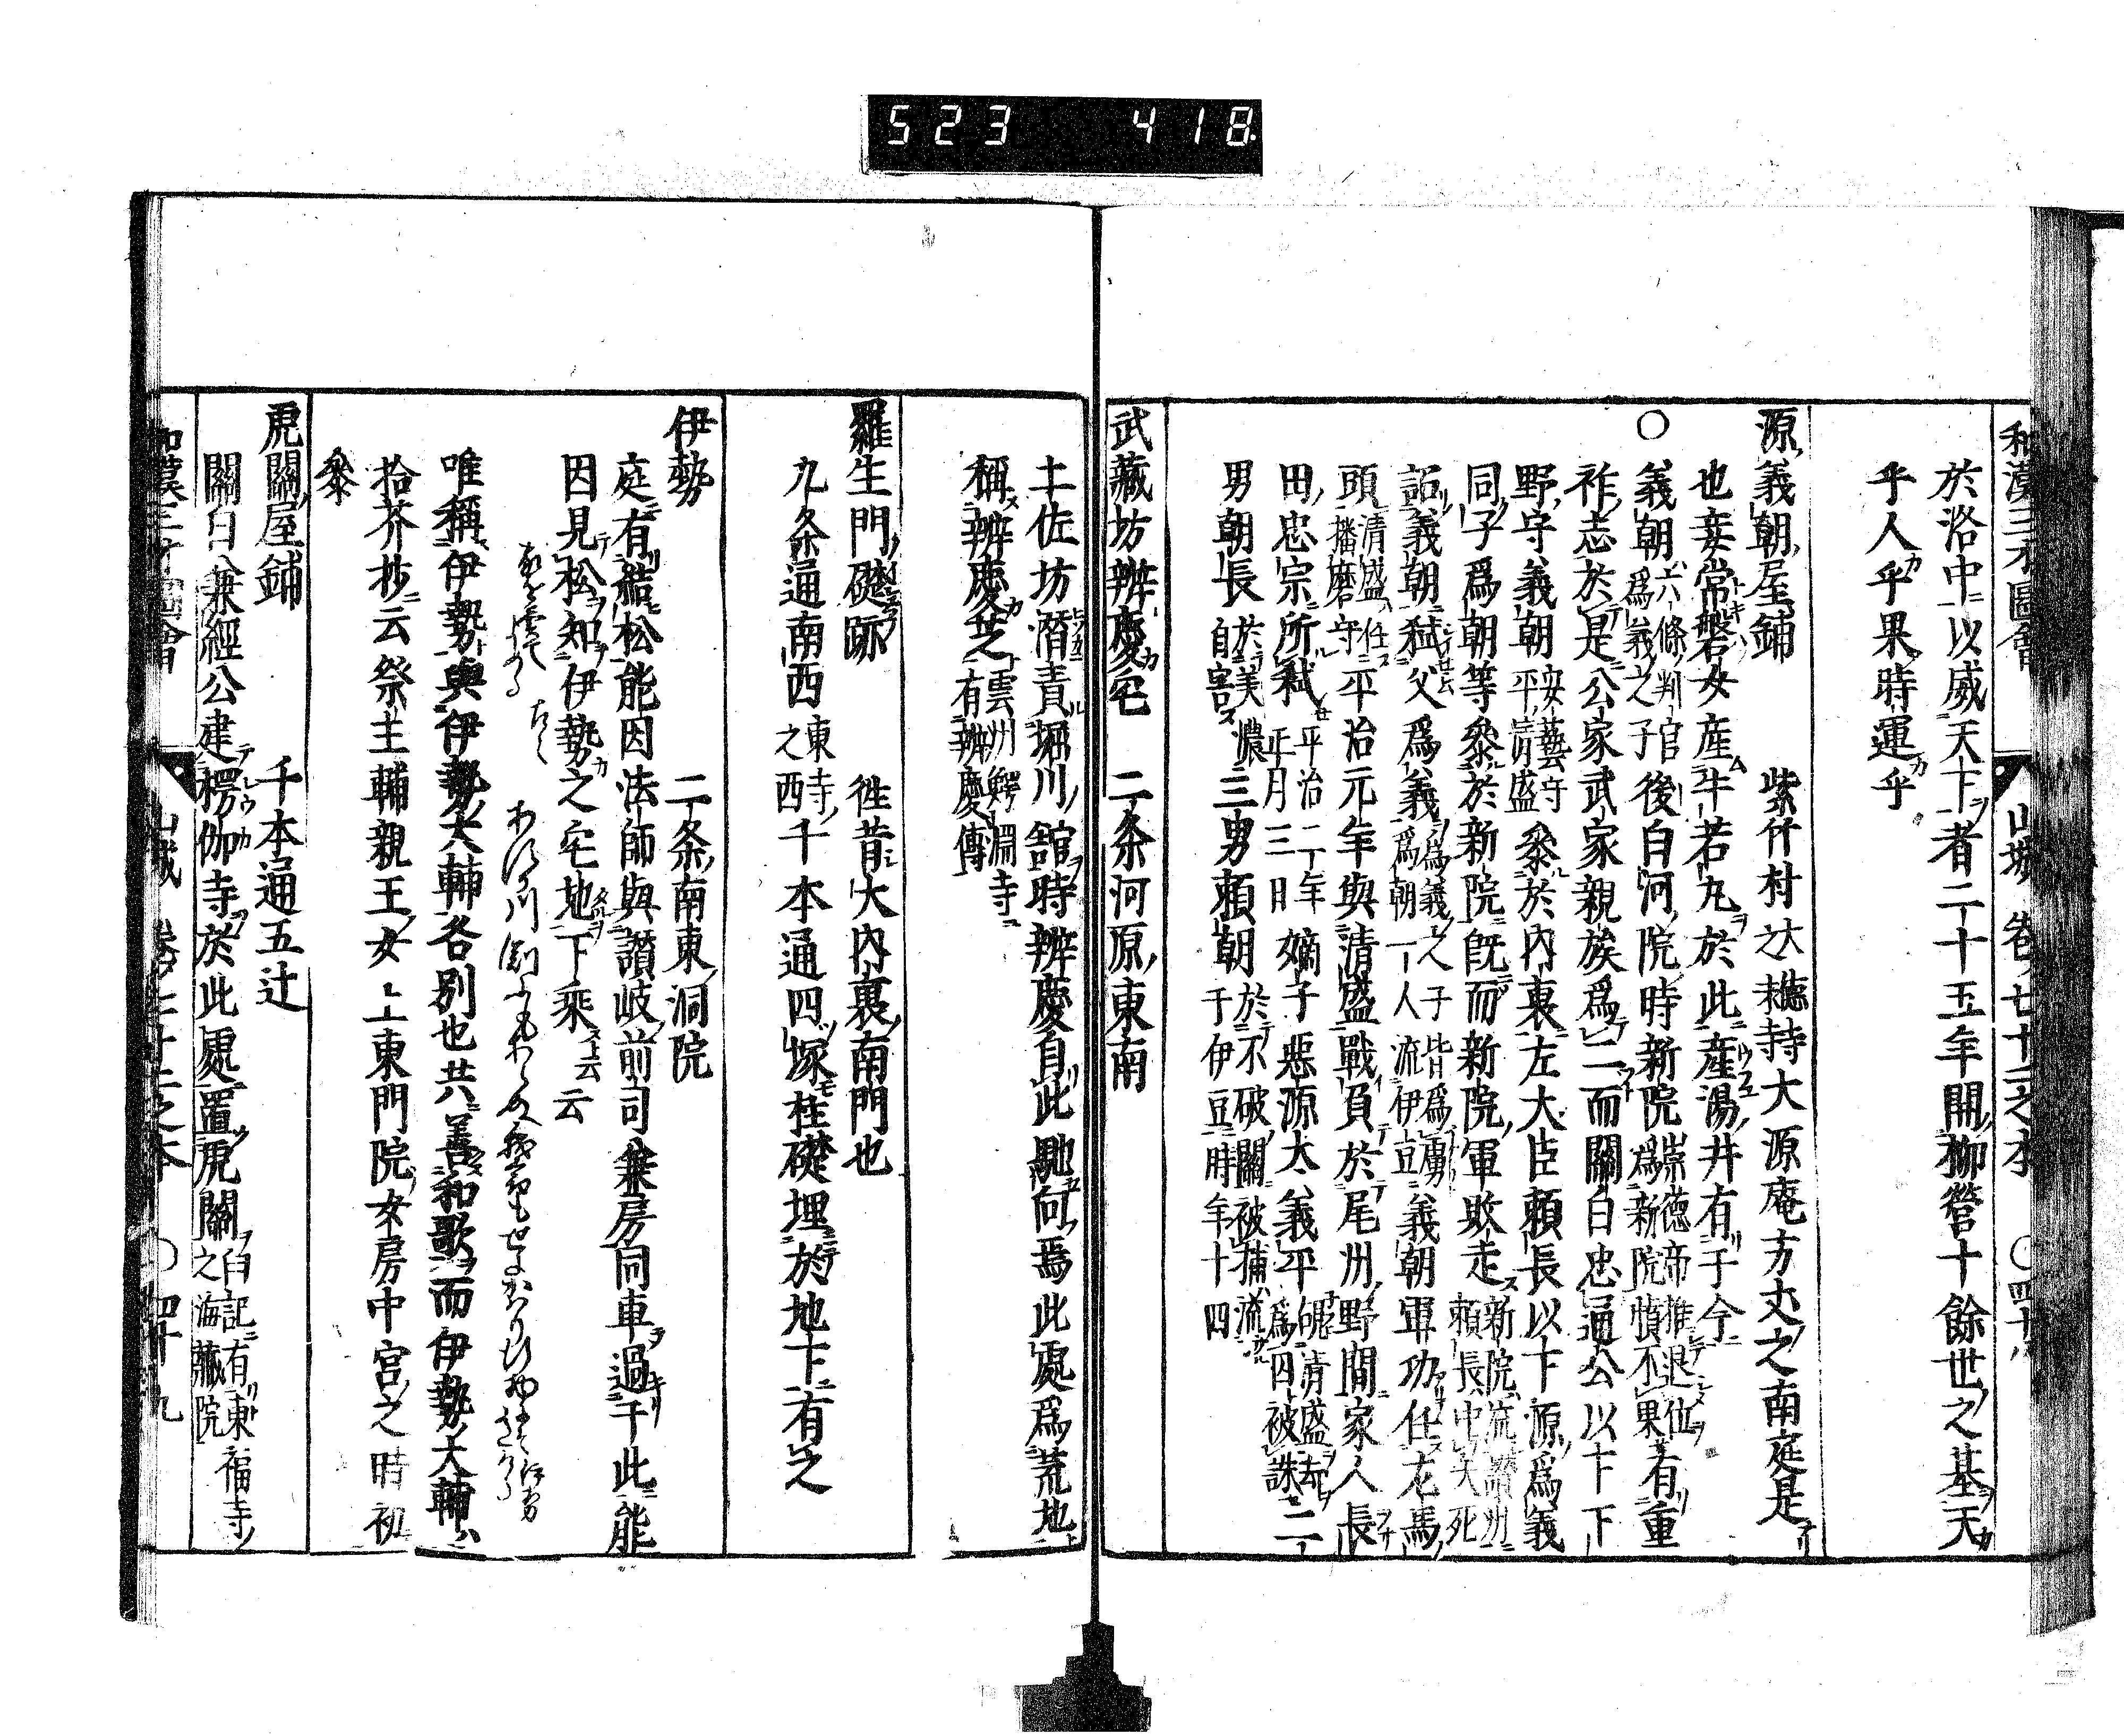 523 418
和漢三才圖會 山城 卷ノ七十二之本 ○四十八
於洛中以威天下者二十五年開柳營十餘世之基天
乎人乎果時運乎
源義朝屋鋪 紫竹村大德寺大源庵方丈之南庭是
也妾常盤女産牛若丸於此産湯井有于今
○義朝六條判官爲義之子後白河院時新院崇德帝推退位爲新院憤不果有重
祚志於是公家武家親族爲二而關白忠通公以下下
野守義朝安藝守平清盛參於内裏左大臣頼長以下源爲義
同子爲朝等參於新院既而新院軍敗走新院流讃州頼長中矢死
詔義朝弑父爲義爲義之子皆爲虜爲朝一人流伊豆義朝軍功任左馬
頭清盛任播磨守平治元年與清盛戰負於尾州野間家人長
田忠宗所弑平治二年正月三日嫡子惡源太義平爲囚被誅二
男朝長於美濃自害三男頼朝於不破關被捕流于伊豆時年十四
武藏坊辨慶宅 二条河原東南
土佐坊潛青堀川舘時辨慶自此馳向焉此處爲荒地
稱辨慶芝雲州鰐淵寺有辨慶傳
羅生門礎跡 徃昔大内裏南門也
九条通南西東寺之西千本通四塚柱礎埋於地下有之
伊勢 二条南東洞院
庭有結松能因法師與讃岐前司兼房同車過于此能
因見松知伊勢之宅地下乘云云
唯稱伊勢與伊勢大輔各別也共善和歌而伊勢大輔
拾芥抄云祭主輔親王女上東門院女房中宮之時初
參
虎關屋鋪 千本通五辻
關白兼經公建楞伽寺於此處置虎關自記有東福寺之海藏院
和漢三才圖會 山城 卷ノ七十二之本 ○四十九